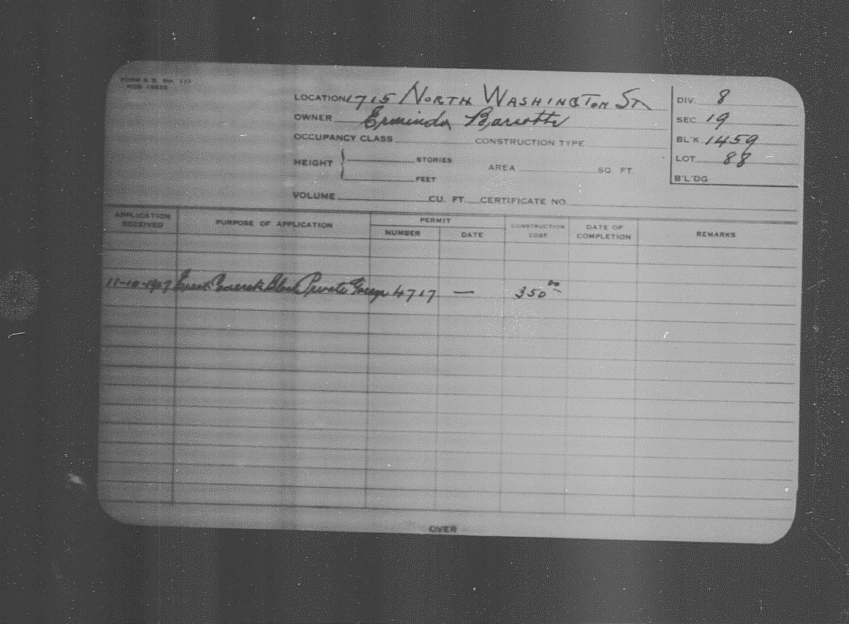 FORM B.B. No. 111
LOCATION 1715 NORTH WASHINGTON ST
OWNER Erminda
OCCUPANCY CLASS CONSTRUCTION TYPE
HEIGHT STORIES
FEET
AREA SQ. FT.
VOLUME CU. FT. CERTIFICATE NO.
DIV. 8
SEC. 19
BL'K. 1459
LOT 88
B'L'DG
APPLICATION RECEIVED PURPOSE OF APPLICATION PERMIT NUMBER DATE CONSTRUCTION COST DATE OF COMPLETION REMARKS
11-10-1927 Erect Concrete Block Private Garage 4717 — 350.00
OVER